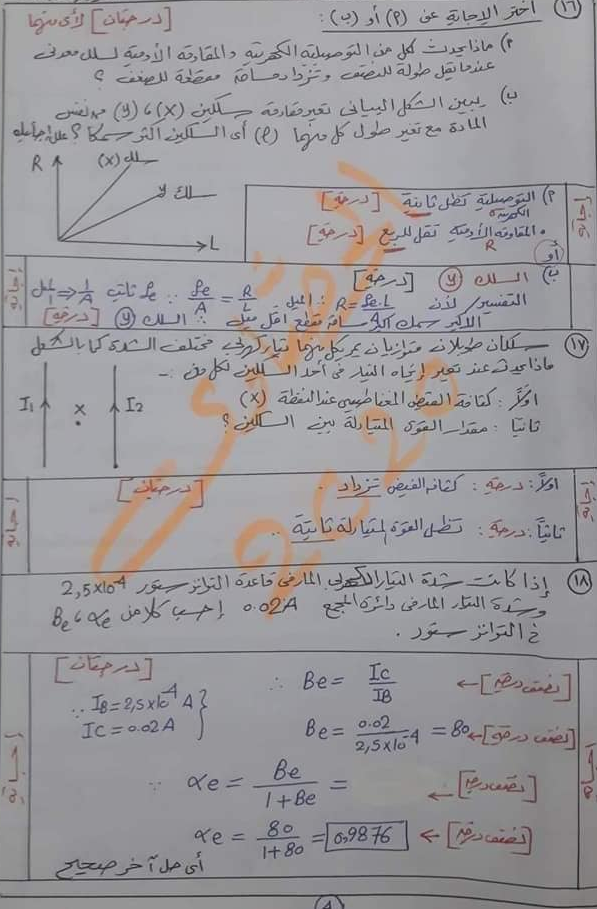 (١٦) أختر الإجابة عن (P) أو (ب) : [درجتان] لأى منهما
P) ماذا يحدث لكل من التوصيلية الكهربية والمقاومة الأومية لسلك معدنى
عندما يقل طوله للنصف وتزداد مساحة مقطعة للضعف ؟
ب) يبين الشكل البيانى تغير مقاومة سلكين (X) ، (y) من نفس
المادة مع تغير طول كل منهما (P) أى السلكين أكثر سمكا ؟ علل إجابتك
R سلك (X)
سلك y
L
إجابة
P) التوصيلية تظل ثابتة [درجة]
الكهربية
• المقاومة الأومية تقل للربع [درجة]
R
أو
ب) السلك (y) [درجة]
التفسير لأن R = ρe.L / A ∴ الميل = R/L = ρe/A ∵ ρe ثابت ⇐ الميل ∝ 1/A
الأكبر سمك له مساحة مقطع أقل ميل ∴ السلك (y) [درجة]
إجابة
(١٧) سلكان طويلان متوازيان يمر بكل منهما تيار كهربى مختلف الشدة كما بالشكل
ماذا يحدث عند تغير إتجاه التيار فى أحد السلكين لكل من :-
أولاً : كثافة الفيض المغناطيسى عند النقطة (X)
ثانيًا : مقدار القوى المتبادلة بين السلكين ؟
I₁ x I₂
[درجتان]
أولاً : درجة : كثافة الفيض تزداد .
ثانيًا : درجة : تظل القوة المتبادلة ثابتة ..
إجابة
(١٨) إذا كانت شدة التيار الكهربى المار فى قاعدة الترانزستور 2,5x10⁻⁴
وشدة التيار المار فى دائرة المجمع 0.02A إحسب كلا من αe ، Be
فى الترانزستور .
[درجتان]
∵ IB = 2,5x10⁻⁴ A
IC = 0.02 A
∴ Be = Ic / IB ← [نصف درجة]
Be = 0.02 / 2,5x10⁻⁴ = 80 ← [نصف درجة]
∵ αe = Be / 1+Be = ← [نصف درجة]
αe = 80 / 1+80 = 0,9876 ← [نصف درجة]
أى حل آخر صحيح
إجابة
2020